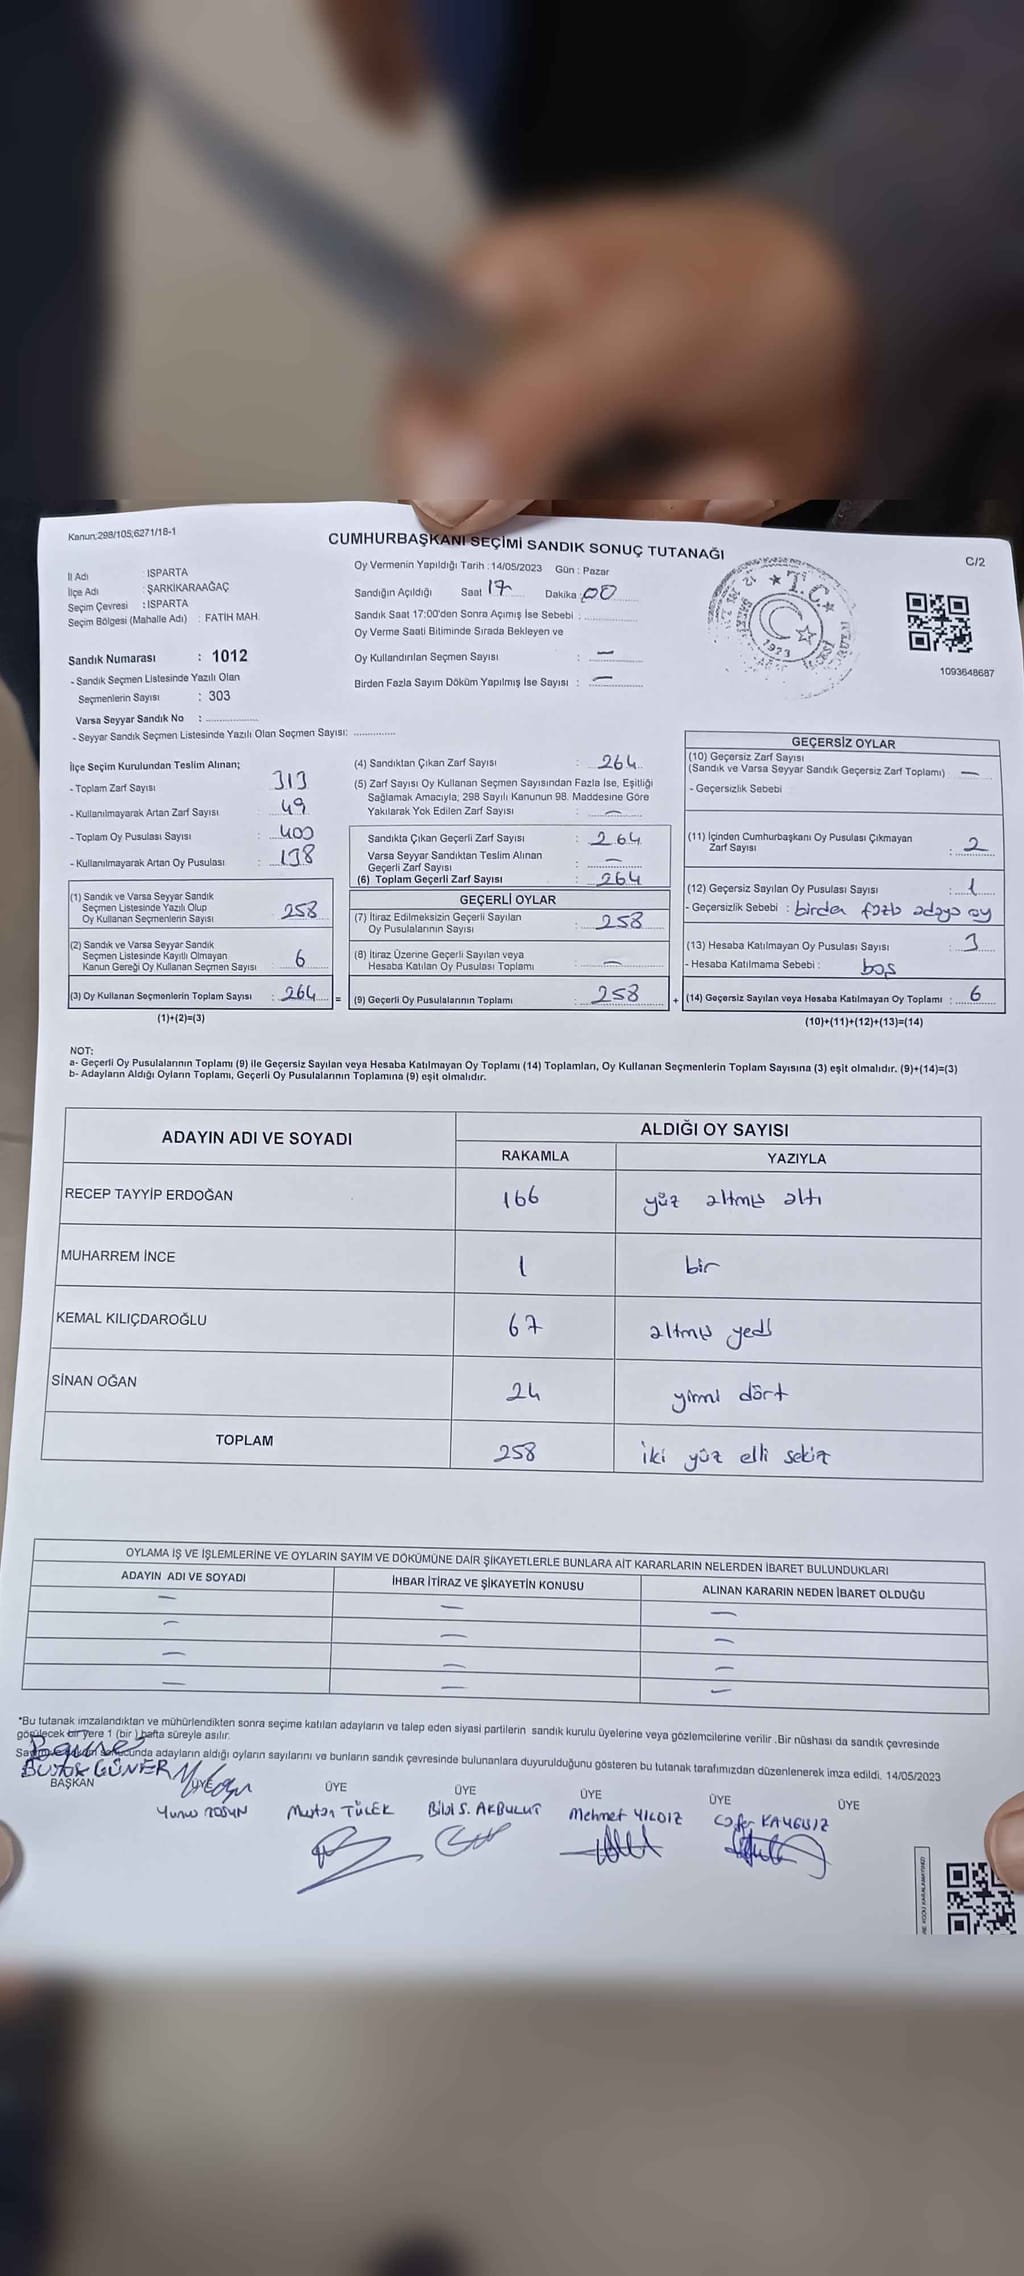 Kanun;298/105;6271/18-1
CUMHURBAŞKANI SEÇİMİ SANDIK SONUÇ TUTANAĞI
C/2
İl Adı : ISPARTA
İlçe Adı : ŞARKİKARAAĞAÇ
Seçim Çevresi : ISPARTA
Seçim Bölgesi (Mahalle Adı) : FATİH MAH.
Sandık Numarası : 1012
- Sandık Seçmen Listesinde Yazılı Olan
Seçmenlerin Sayısı : 303
Varsa Seyyar Sandık No : ....................
- Seyyar Sandık Seçmen Listesinde Yazılı Olan Seçmen Sayısı: ..............
Oy Vermenin Yapıldığı Tarih : 14/05/2023 Gün : Pazar
Sandığın Açıldığı Saat 17 Dakika : 00
Sandık Saat 17:00'den Sonra Açımış İse Sebebi : ....................
Oy Verme Saati Bitiminde Sırada Bekleyen ve
Oy Kullandırılan Seçmen Sayısı : —
Birden Fazla Sayım Döküm Yapılmış İse Sayısı : —
T.C.
1923
1093648687
İlçe Seçim Kurulundan Teslim Alınan;
- Toplam Zarf Sayısı : 313
- Kullanılmayarak Artan Zarf Sayısı : 49
- Toplam Oy Pusulası Sayısı : 400
- Kullanılmayarak Artan Oy Pusulası : 138
(1) Sandık ve Varsa Seyyar Sandık
Seçmen Listesinde Yazılı Olup
Oy Kullanan Seçmenlerin Sayısı : 258
(2) Sandık ve Varsa Seyyar Sandık
Seçmen Listesinde Kayıtlı Olmayan
Kanun Gereği Oy Kullanan Seçmen Sayısı : 6
(3) Oy Kullanan Seçmenlerin Toplam Sayısı : 264 =
(1)+(2)=(3)
(4) Sandıktan Çıkan Zarf Sayısı : 264
(5) Zarf Sayısı Oy Kullanan Seçmen Sayısından Fazla İse, Eşitliği
Sağlamak Amacıyla; 298 Sayılı Kanunun 98. Maddesine Göre
Yakılarak Yok Edilen Zarf Sayısı : —
Sandıkta Çıkan Geçerli Zarf Sayısı : 264
Varsa Seyyar Sandıktan Teslim Alınan
Geçerli Zarf Sayısı : —
(6) Toplam Geçerli Zarf Sayısı : 264
GEÇERLİ OYLAR
(7) İtiraz Edilmeksizin Geçerli Sayılan
Oy Pusulalarının Sayısı : 258
(8) İtiraz Üzerine Geçerli Sayılan veya
Hesaba Katılan Oy Pusulası Toplamı : —
(9) Geçerli Oy Pusulalarının Toplamı : 258 +
GEÇERSİZ OYLAR
(10) Geçersiz Zarf Sayısı
(Sandık ve Varsa Seyyar Sandık Geçersiz Zarf Toplamı) : —
- Geçersizlik Sebebi
(11) İçinden Cumhurbaşkanı Oy Pusulası Çıkmayan
Zarf Sayısı : 2
(12) Geçersiz Sayılan Oy Pusulası Sayısı : 1
- Geçersizlik Sebebi : birden fazla adaya oy
(13) Hesaba Katılmayan Oy Pusulası Sayısı : 3
- Hesaba Katılmama Sebebi : boş
(14) Geçersiz Sayılan veya Hesaba Katılmayan Oy Toplamı : 6
(10)+(11)+(12)+(13)=(14)
NOT:
a- Geçerli Oy Pusulalarının Toplamı (9) ile Geçersiz Sayılan veya Hesaba Katılmayan Oy Toplamı (14) Toplamları, Oy Kullanan Seçmenlerin Toplam Sayısına (3) eşit olmalıdır. (9)+(14)=(3)
b- Adayların Aldığı Oyların Toplamı, Geçerli Oy Pusulalarının Toplamına (9) eşit olmalıdır.
ADAYIN ADI VE SOYADI ALDIĞI OY SAYISI
RAKAMLA YAZIYLA
RECEP TAYYİP ERDOĞAN 166 yüz altmış altı
MUHARREM İNCE 1 bir
KEMAL KILIÇDAROĞLU 67 altmış yedi
SİNAN OĞAN 24 yirmi dört
TOPLAM 258 iki yüz elli sekiz
OYLAMA İŞ VE İŞLEMLERİNE VE OYLARIN SAYIM VE DÖKÜMÜNE DAİR ŞİKAYETLERLE BUNLARA AİT KARARLARIN NELERDEN İBARET BULUNDUKLARI
ADAYIN ADI VE SOYADI İHBAR İTİRAZ VE ŞİKAYETİN KONUSU ALINAN KARARIN NEDEN İBARET OLDUĞU
— — —
— — —
— — —
— — —
*Bu tutanak imzalandıktan ve mühürlendikten sonra seçime katılan adayların ve talep eden siyasi partilerin sandık kurulu üyelerine veya gözlemcilerine verilir .Bir nüshası da sandık çevresinde
görülecek bir yere 1 (bir ) hafta süreyle asılır.
sonucunda adayların aldığı oyların sayılarını ve bunların sandık çevresinde bulunanlara duyurulduğunu gösteren bu tutanak tarafımızdan düzenlenerek imza edildi. 14/05/2023
GÜNER
BAŞKAN ÜYE ÜYE ÜYE ÜYE ÜYE ÜYE
Yunus TOSUN TÜLEK S. AKBULUT Mehmet YILDIZ Cafer KAYGISIZ